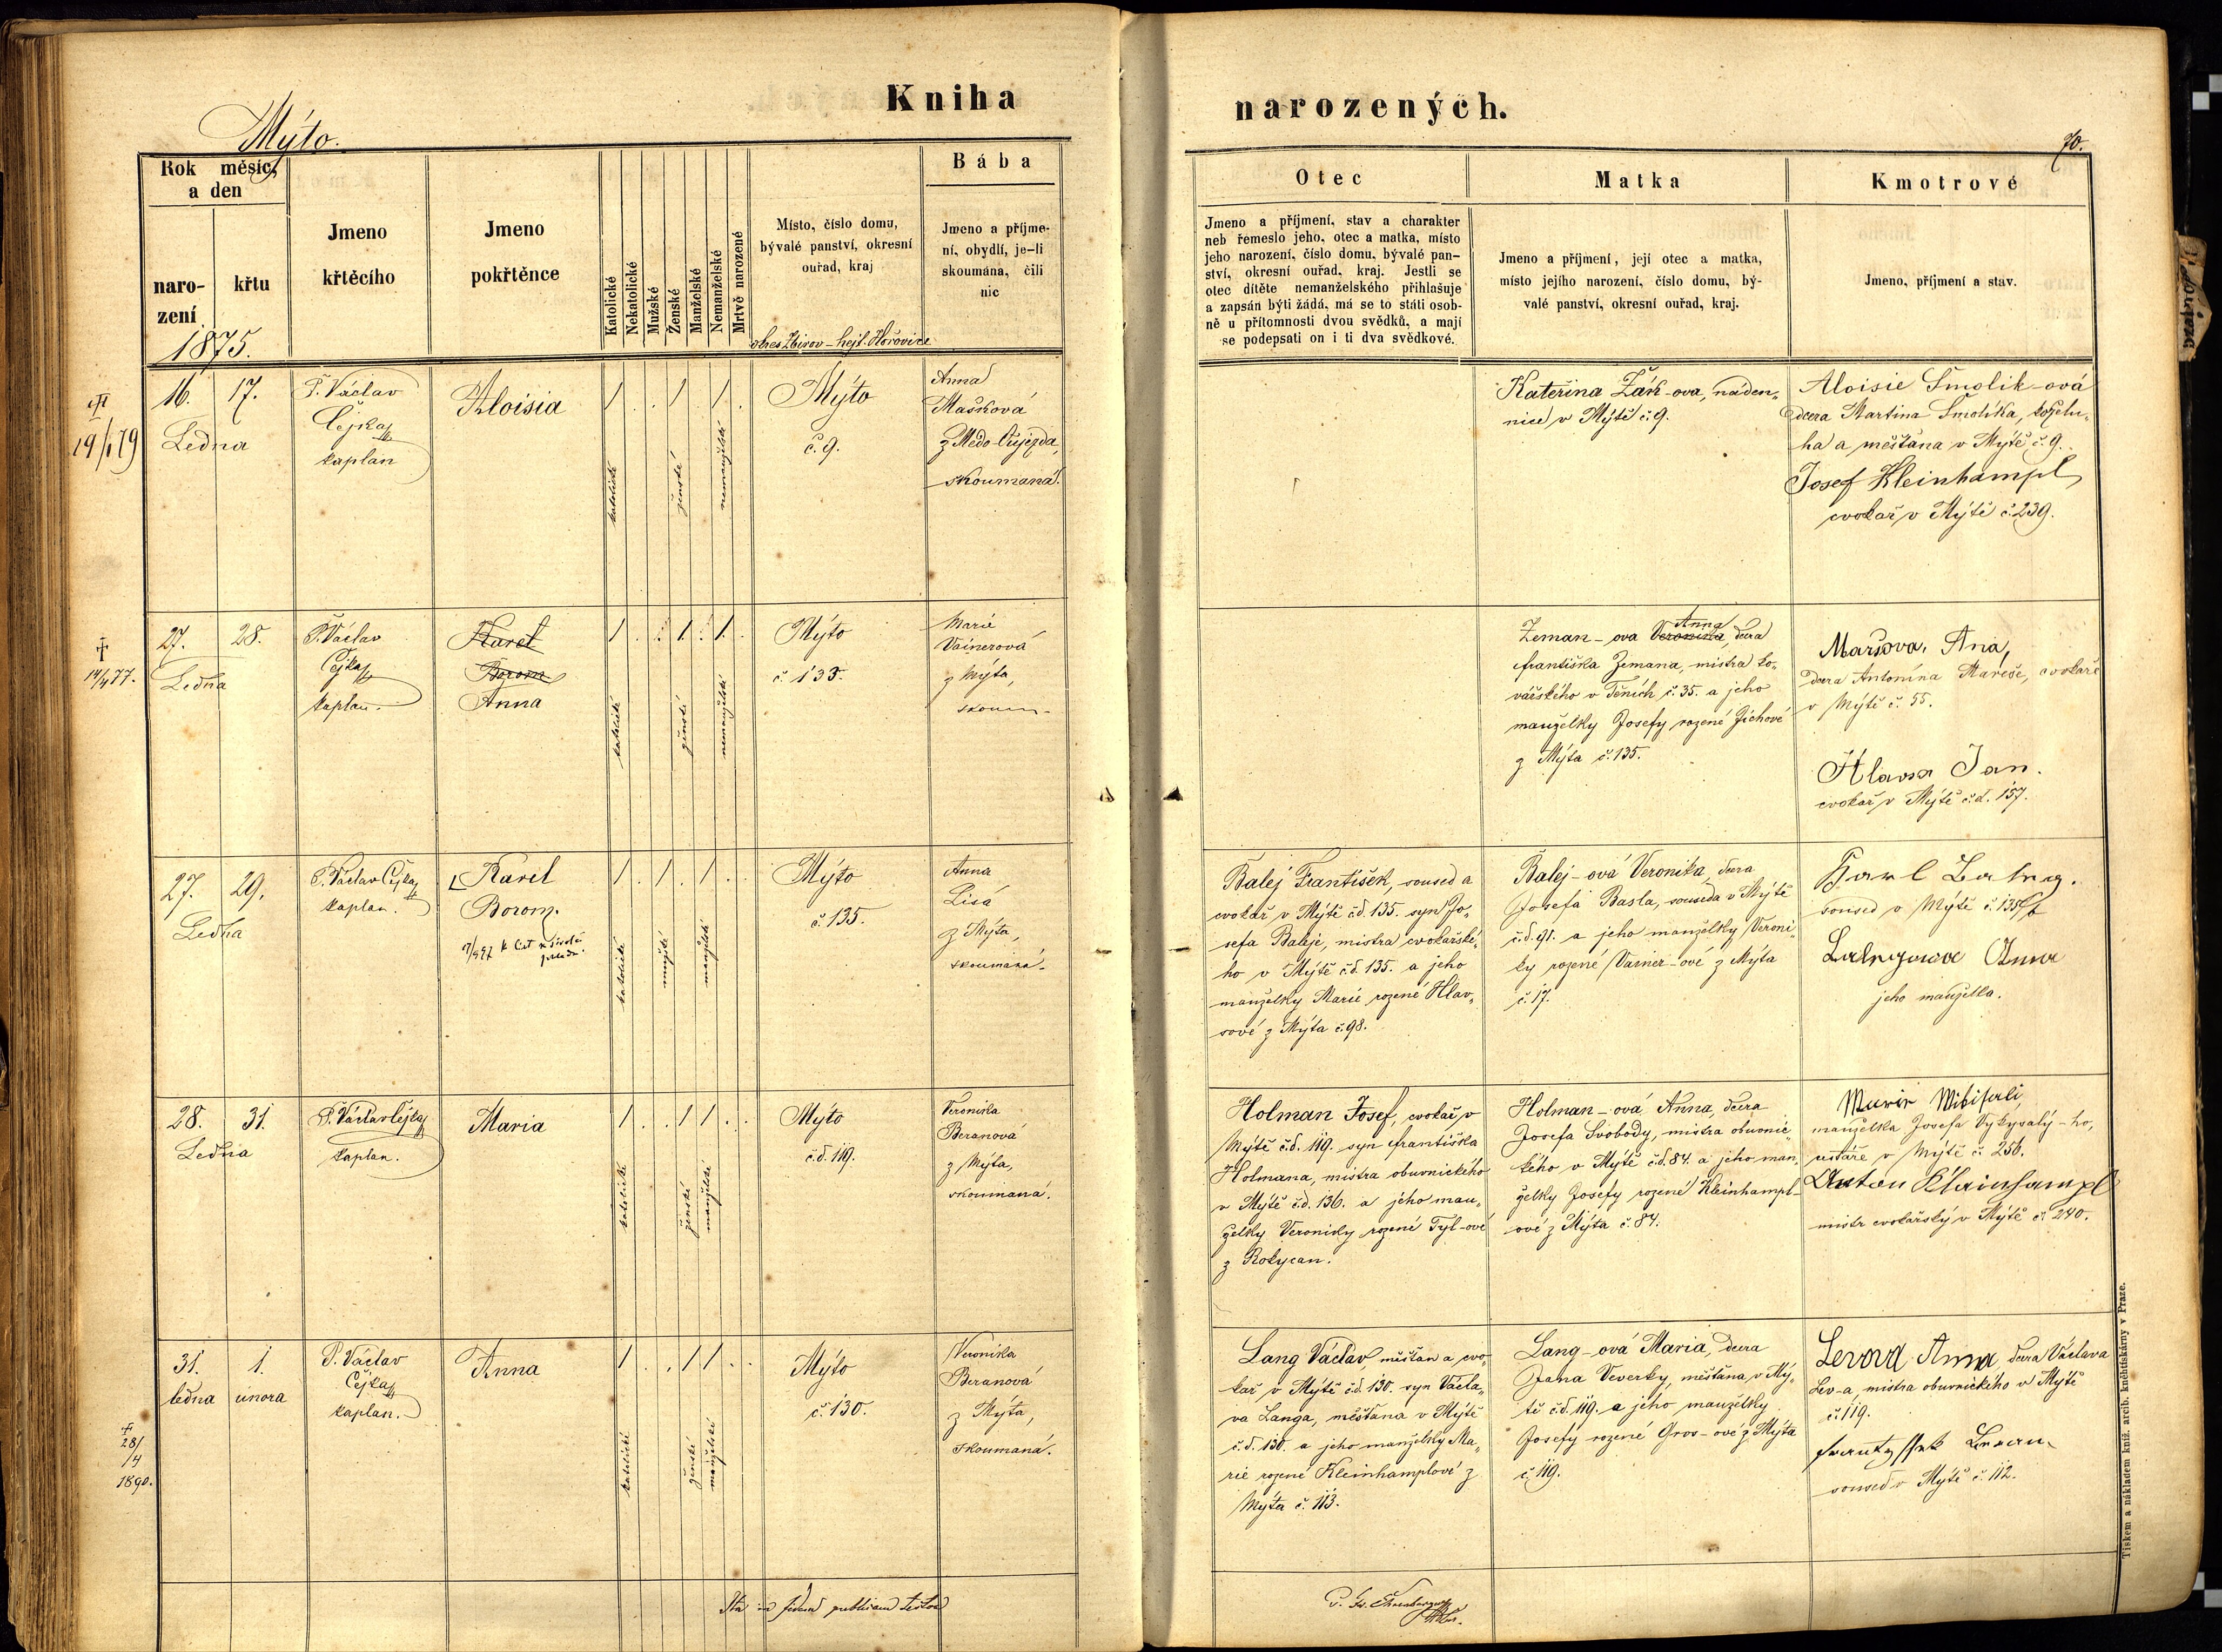 Kniha
narozených.
Mýto.
70.
Rok měsíc,
a den
naro-
zení
křtu
1875.
Jmeno
křtěcího
Jmeno
pokřtěnce
Katolické
Nekatolické
Mužské
Ženské
Manželské
Nemanželské
Mrtvě narozené
Místo, číslo domu,
bývalé panství, okresní
ouřad, kraj
okres Zbirov - hejt. Hořovice
Bába
Jmeno a příjme-
ní, obydlí, je-li
skoumána, čili
nic
Otec
Jmeno a příjmení, stav a charakter
neb řemeslo jeho, otec a matka, místo
jeho narození, číslo domu, bývalé pan-
ství, okresní ouřad, kraj. Jestli se
otec dítěte nemanželského přihlašuje
a zapsán býti žádá, má se to státi osob-
ně u přítomnosti dvou svědků, a mají
se podepsati on i ti dva svědkové.
Matka
Jmeno a příjmení, její otec a matka,
místo jejího narození, číslo domu, bý-
valé panství, okresní ouřad, kraj.
Kmotrové
Jmeno, příjmení a stav.
16. 17.
Ledna
P. Václav
Čejka
kaplan
Aloisia
katolické
ženské
nemanželské
Mýto
č. 9.
Anna
Mašková
z Medo-Oujezda,
skoumaná.
Kateřina Žák-ova, náden-
nice v Mýtě č. 9.
Aloisie Smolik-ová
dcera Martina Smolíka, koželu-
ha a měšťana v Mýtě č. 9.
Josef Kleinhampl
cvokař v Mýtě č. 239.
14/4 77.
27. 28.
Ledna
P. Václav
Čejka
kaplan.
Karel
Borom.
Anna
katolické
ženské
nemanželské
Mýto
č. 135.
Marie
Vainerová
z Mýta,
skoum-
Anna
Zeman-ova Veronika, dcera
Františka Zemana, mistra ko-
vářského v Těních č. 35. a jeho
manželky Josefy rozené Zíchové
z Mýta č. 135.
Maršova, Ana,
dcera Antonína Mareše, cvokaře
v Mýtě č. 55.
Hlavsa Jan.
cvokař v Mýtě č.d. 157.
27. 29.
Ledna
P. Václav Čejka
kaplan.
Karel
Borom.
katolické
mužské
manželské
Mýto
č. 135.
Anna
Lisá
z Mýta,
skoumaná.
Balej František, soused a
cvokař v Mýtě č.d. 135. syn Jo-
sefa Baleje, mistra cvokařské-
ho v Mýtě č.d. 135. a jeho
manželky Marie rozené Hlav-
sové z Mýta č. 98.
Balej-ová Veronika, dcera
Josefa Basla, souseda v Mýtě
č.d. 91. a jeho manželky Veroni-
ky rozené Vainer-ové z Mýta
č. 17.
soused v Mýtě č. 135
Anna
jeho manželka.
28. 31.
Ledna
P. Václav Čejka
kaplan.
Maria
katolické
ženské
manželské
Mýto
č.d. 119.
Veronika
Beranová
z Mýta,
skoumaná.
Holman Josef, cvokař v
Mýtě č.d. 119. syn Františka
Holmana, mistra obuvnického
v Mýtě č.d. 136. a jeho man-
želky Veroniky rozené Tyl-ové
z Rokycan.
Holman-ová Anna, dcera
Josefa Svobody, mistra obuvnic-
kého v Mýtě č.d. 84. a jeho man-
želky Josefy rozené Kleinhampl-
ové z Mýta č. 84.
manželka Josefa Vykysalý-ho,
v Mýtě č. 256.
Anton Kleinhampl
mistr cvokařský v Mýtě č. 240.
28/4
1890.
31. 1.
ledna února
P. Václav
Čejka
kaplan.
Anna
katolické
ženské
manželské
Mýto
č. 130.
Veronika
Beranová
z Mýta,
skoumaná.
Lang Václav měšťan a cvo-
kař v Mýtě č.d. 130. syn Václa-
va Langa, měšťana v Mýtě
č.d. 130. a jeho manželky Ma-
rie rozené Kleinhamplové z
Mýta č. 113.
Lang-ová Maria, dcera
Jana Veverky, měšťana v Mý-
tě č.d. 119. a jeho manželky
Josefy rozené Gros-ové z Mýta
č. 119.
Levová Anna, dcera Václava
Lev-a, mistra obuvnického v Mýtě
č. 119.
soused v Mýtě č. 112.
Ita in fidem publicam testor
Tiskem a nákladem kníž. arcib. kněhtiskárny v Praze.